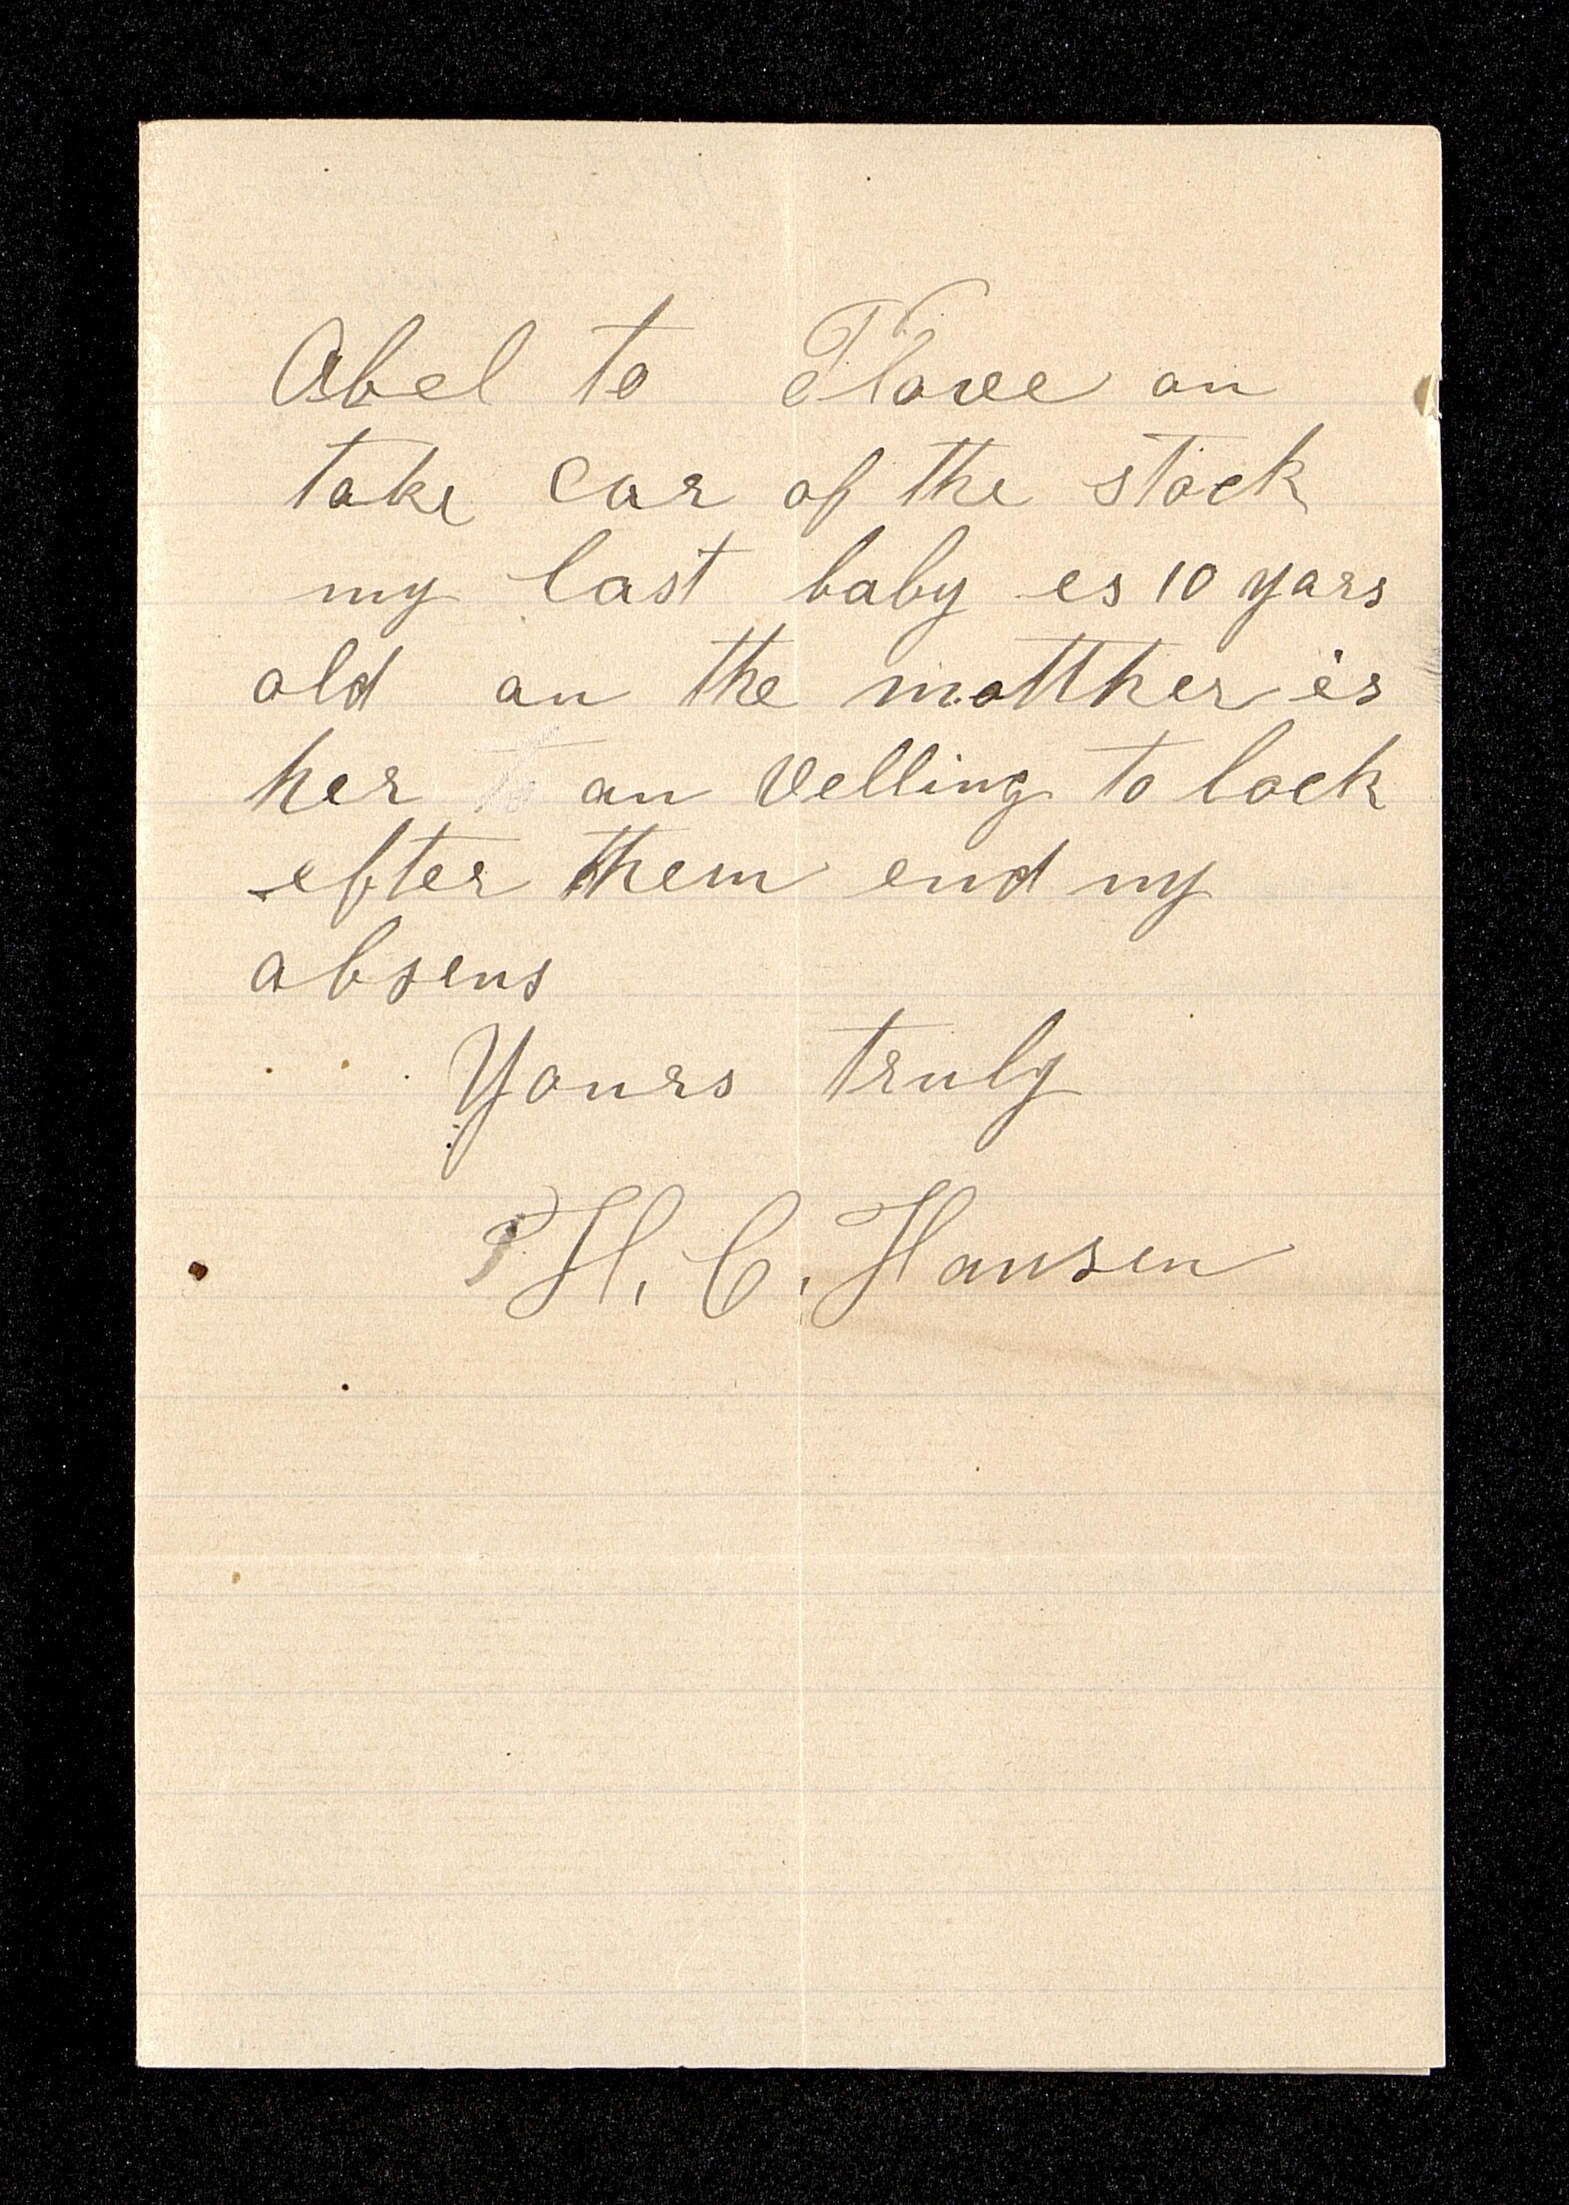 Abel to Plove an
take car of the stock
my last baby es 10 yars
old an the motther is
her an velling to lock
efter them end my
absens
Yours truly
H. C. Hansen